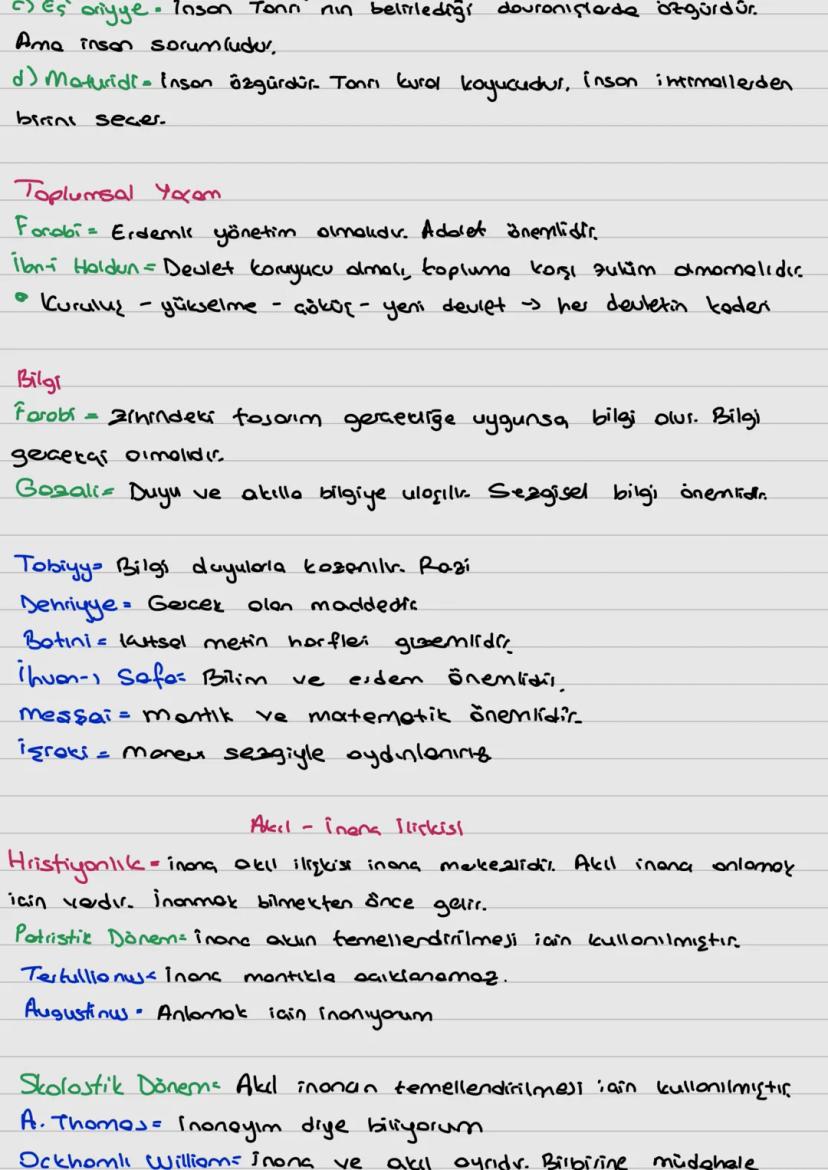 c) Eş'ariyye = İnsan Tanrı'nın belirlediği davranışlarda özgürdür.
Ama insan sorumludur.
d) Maturidi = İnsan özgürdür. Tanrı kural koyucudur, insan ihtimallerden
birini seçer.
Toplumsal Yaşam
Farabi = Erdemli yönetim olmalıdır. Adalet önemlidir.
İbn-i Haldun = Devlet koruyucu olmalı, topluma karşı zulüm olmamalıdır.
• Kuruluş - yükselme - çöküş - yeni devlet → her devletin kaderi
Bilgi
Farabi = Zihindeki tasarım gerçekliğe uygunsa bilgi olur. Bilgi
gerçekçi olmalıdır.
Gazali = Duyu ve akılla bilgiye ulaşılır. Sezgisel bilgi önemlidir.
Tabiyy = Bilgi duyularla kazanılır. Razi
Dehriyye = Gerçek olan maddedir.
Batıni = Kutsal metin harfleri gizemlidir.
İhvan-ı Safa = Bilim ve erdem önemlidir.
Meşşai = mantık ve matematik önemlidir.
İşraki = Manevi sezgiyle aydınlanırız
Akıl - İnanç İlişkisi
Hristiyanlık = inanç akıl ilişkisi inanç merkezlidir. Akıl inancı anlamak
için vardır. İnanmak bilmekten önce gelir.
Patristik Dönem = İnanç aklın temellendirilmesi için kullanılmıştır.
Tertullianus = İnanç mantıkla açıklanamaz.
Augustinus = Anlamak için inanıyorum
Skolastik Dönem = Akıl inancın temellendirilmesi için kullanılmıştır.
A. Thomas = İnanayım diye biliyorum
Ockhamlı William = İnanç ve akıl ayrıdır. Birbirine müdahale